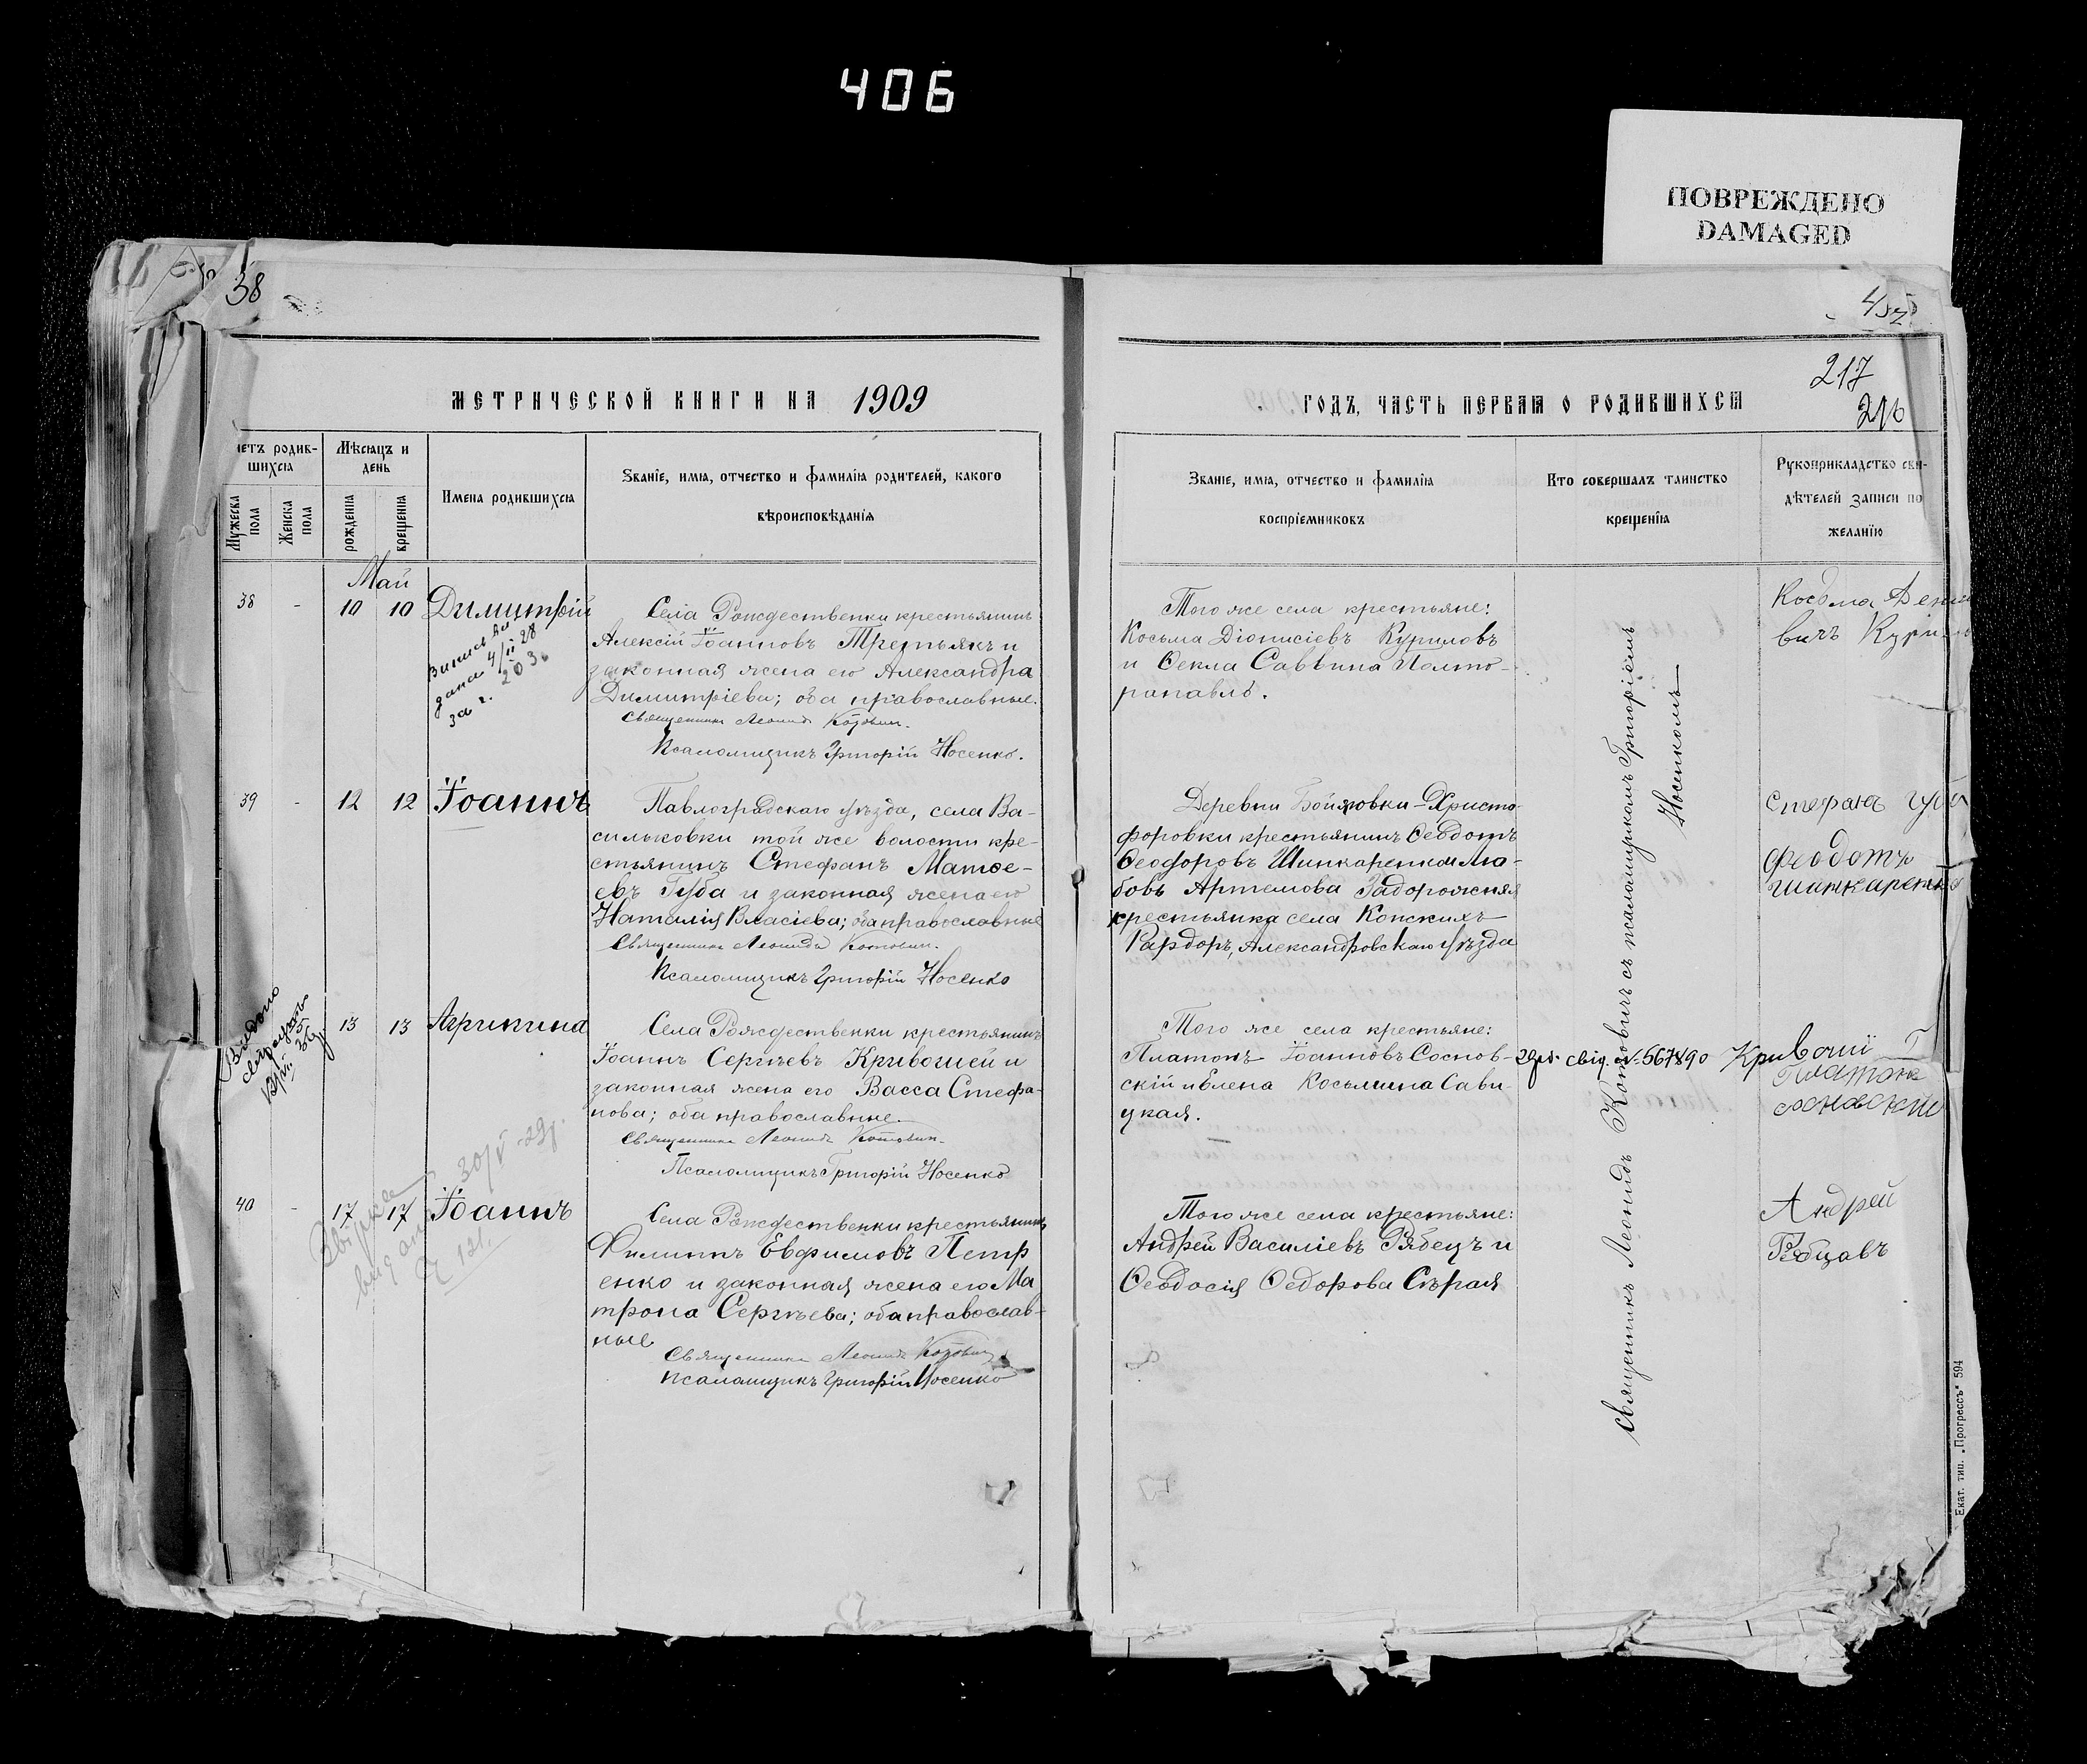 406
ПОВРЕЖДЕНО
DAMAGED
38
МЕТРИЧЕСКОЙ КНИГИ НА 1909
четъ родив-
шихся
Мужеска пола
Женска пола
Мѣсяцъ и
день
рожденія
крещенія
Имена родившихся
Званіе, имя, отчество и фамилія родителей, какого
вѣроисповѣданія
Май
38 - 10 10 Димитрій
дана 4/II 28
за г. 203
Села Рождественки крестьянинъ
Алексій Іоанновъ Третьякъ и
законная жена его Александра
Димитріева; оба православные.
Священникъ Леонидъ Котовичъ.
Псаломщикъ Григорій Носенко.
39 - 12 12 Іоаннъ
Павлоградскаго уѣзда, села Ва-
сильковки той же волости кре-
стьянинъ Стефанъ Матѳе-
евъ Губа и законная жена его
Наталія Власіева; оба православные
Священникъ Леонидъ Котовичъ.
Псаломщикъ Григорій Носенко
13 13 Агрипина
Села Рождественки крестьянинъ
Іоаннъ Сергѣевъ Кривошей и
законная жена его Васса Стефа-
нова; оба православные.
Священникъ Леонидъ Котовичъ.
Псаломщикъ Григорій Носенко
30/V-29 г.
40 - 17 17 Іоаннъ
№ 121.
Села Рождественки крестьянинъ
Филиппъ Евфимовъ Петр
енко и законная жена его Ма
трона Сергѣева; оба православ-
ные
Священникъ Леонидъ Котовичъ
Псаломщикъ Григорій Носенко
217
216
ГОДЪ, ЧАСТЬ ПЕРВАЯ О РОДИВШИХСЯ
Званіе, имя, отчество и фамилія
воспріемниковъ
Кто совершалъ таинство
крещенія
Рукоприкладство сви-
дѣтелей записи по
желанію
Того же села крестьяне:
Косьма Діонисіевъ Куриловъ
и Ѳекла Саввина Полто-
рапавлѣ.
Косьма Дени
вичъ Курило
Деревни Бойковки-Христо-
форовки крестьянинъ Ѳеодотъ
Ѳеодоровъ Шинкаренко и Лю-
бовь Артемова Задорожная
крестьянка села Конскихъ
Раздоръ, Александровскаго уѣзда
Стефанъ Губа
Феодотъ
Шинкаренко
Того же села крестьяне:
Платонъ Іоанновъ Соснов-
скій и Елена Косьмина Сави-
цкая.
свід. №567890 Кривошій
Платонъ
Сосновский
Того же села крестьяне:
Андрей Василіевъ Рябецъ и
Ѳеодосія Ѳедорова Сѣрая
Андрей
Рябцавъ
Священникъ Леонидъ Котовичъ съ псаломщикомъ Григоріемъ
Носенкомъ
Екат. тип. „Прогрессъ“ 594